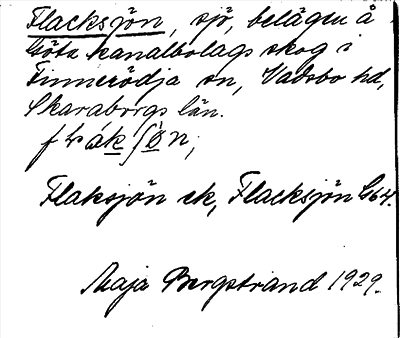 Flacksjön, sjö, belägen å
Göta kanalbolags skog i
Finnerödja sn, Vadsbo hd,
Skaraborgs län.
Flaksjön ek, Flacksjön G64.
Maja Bergstrand 1929.